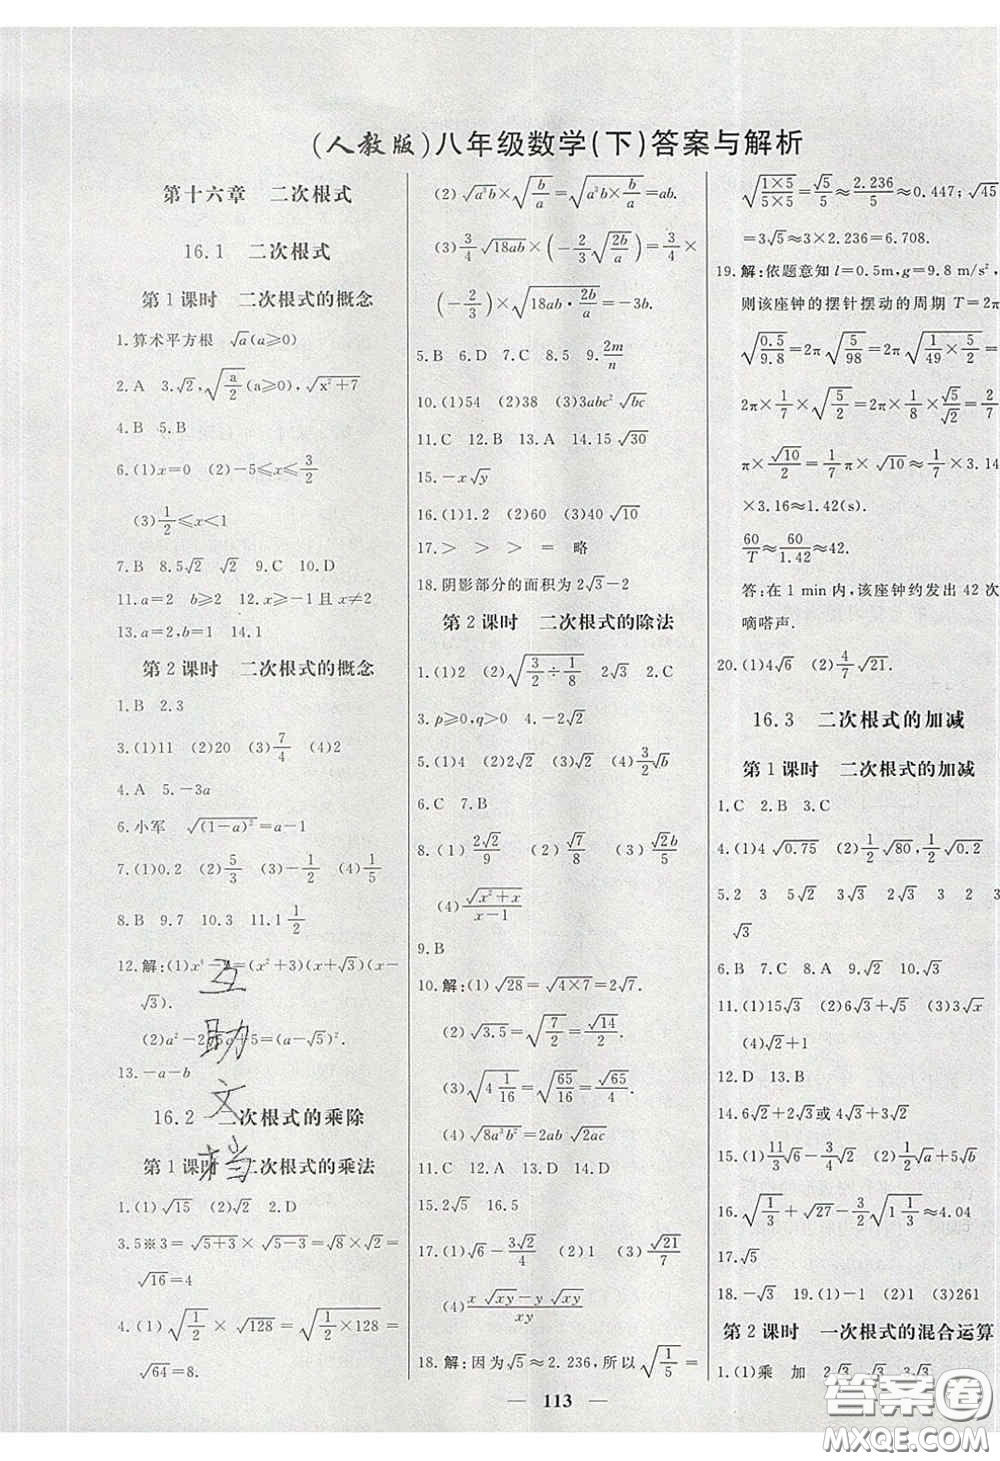 (人教版)八年级数学(下)答案与解析
第十六章　二次根式
16.1　二次根式
第 1 课时　二次根式的概念
1.算术平方根　√a(a⩾0)
2.A　3.√2,√(a/2)(a⩾0),√(x²+7)
4.B　5.B
6.(1)x=0　(2)-5⩽x⩽3/2
(3)1/2⩽x<1
7.B　8.5√2　√2　9.C　10.D
11.a=2　b⩾2　12.x⩾-1且x≠2
13.a=2,b=1　14.1
第 2 课时　二次根式的概念
1.B　2.3
3.(1)11　(2)20　(3)7/4　(4)2
4.A　5.-3a
6.小军　√((1-a)²)=a-1
7.(1)0.2　(2)5/3　(3)-1/2　(4)1/5
8.B　9.7　10.3　11.1 1/2
12.解:(1)x⁴- =(x²+3)(x+√3)(x-
√3).
(2)a²-2 a+5=(a-√5)².
13.-a-b
16.2　二次根式的乘除
第 1 课时　二次根式的乘法
1.(1)√15　(2)√2　2.D
3.5※3=√(5+3)×√(5-3)=√8×√2=
√16=4
4.(1)√(1/2)×√128=√(1/2×128)=
√64=8.
(2)√(a³b)×√(b/a)=√(a³b×b/a)=ab.
(3)3/4√(18ab)×(-2/3√(2b/a))=3/4×
(-2/3)×√(18ab·2b/a)=-3b.
5.B　6.D　7.C　8.5　9.2m/n
10.(1)54　(2)38　(3)3abc²√(bc)
11.C　12.B　13.A　14.15√30
15.-x√y
16.(1)1.2　(2)60　(3)40√10
17.>　>　>　=　略
18.阴影部分的面积为2√3-2
第 2 课时　二次根式的除法
1.(1)2　(2)√(3/2÷1/8)　2√3　2.A
3.p⩾0,q>0　4.-2√2
5.(1)4　(2)2√2　(3)√2　(4)3/2√b
6.C　7.B
8.(1)2√2/9　(2)√7/8　(3)√2b/5a
(4)√(x²+x)/(x-1)
9.B
10.解:(1)√28=√(4×7)=2√7.
(2)√3.5=√(7/2)=√14/2.
(3)√(4 1/16)=√(65/16)=√65/4.
(4)√(8a³b²c)=2ab√(2ac)
11.C　12.A　13.D　14.D
15.2√2　16.5
17.(1)√6-3√2/4　(2)1　(3)√21/7
(4)(x√(xy)-y√(xy))/xy
18.解:因为√5≈2.236,所以√(1/5)=
√((1×5)/(5×5))=√5/5≈2.236/5≈0.447;√45
=3√5≈3×2.236=6.708.
19.解:依题意知l=0.5m,g=9.8 m/s²,
则该座钟的摆针摆动的周期T=2π
√(0.5/9.8)=2π√(5/98)=2π√(1/49×5/2)=
2π×1/7×√(5/2)=2π×1/8×√5/√2=2/7
π×√10/2=1/7π×√10≈1/7×3.14
×3.16≈1.42(s).
60/T≈60/1.42≈42.
答:在 1 min 内,该座钟约发出 42 次
嘀嗒声.
20.(1)4√6　(2)4/7√21.
16.3　二次根式的加减
第 1 课时　二次根式的加减
1.C　2.B　3.C
4.(1)4√0.75　(2)1/2√80,1/2√0.2
5.2　3　5√2　3√3　2√3　2　3
√3
6.B　7.C　8.A　9.√2　10.D
11.(1)2√3　(2)6√3+√5　(3)3√x
(4)√2+1
12.D　13.B
14.6√2+√3或4√2+2√3
15.(1)11/3√3-3/2√6　(2)1/2√a+5√b
16.√(1/3)+√27-3/2√(1/3)≈4.04
17.√5
18.-√3　19.(1)-1　(2)1　(3)261
第 2 课时　一次根式的混合运算
1.(1)乘　加　2√3　√3　3√3
113
互助文档
答案圈
MXQE.COM